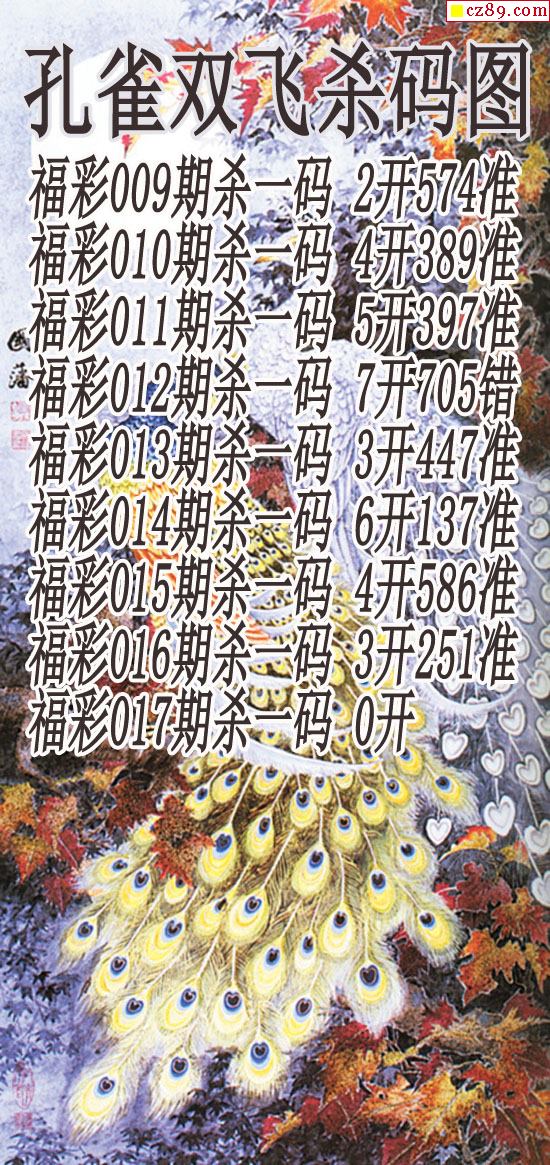 cz89.com
孔雀双飞杀码图
福彩009期杀一码 2开574准
福彩010期杀一码 4开389准
福彩011期杀一码 5开397准
福彩012期杀一码 7开705错
福彩013期杀一码 3开447准
福彩014期杀一码 6开137准
福彩015期杀一码 4开586准
福彩016期杀一码 3开251准
福彩017期杀一码 0开